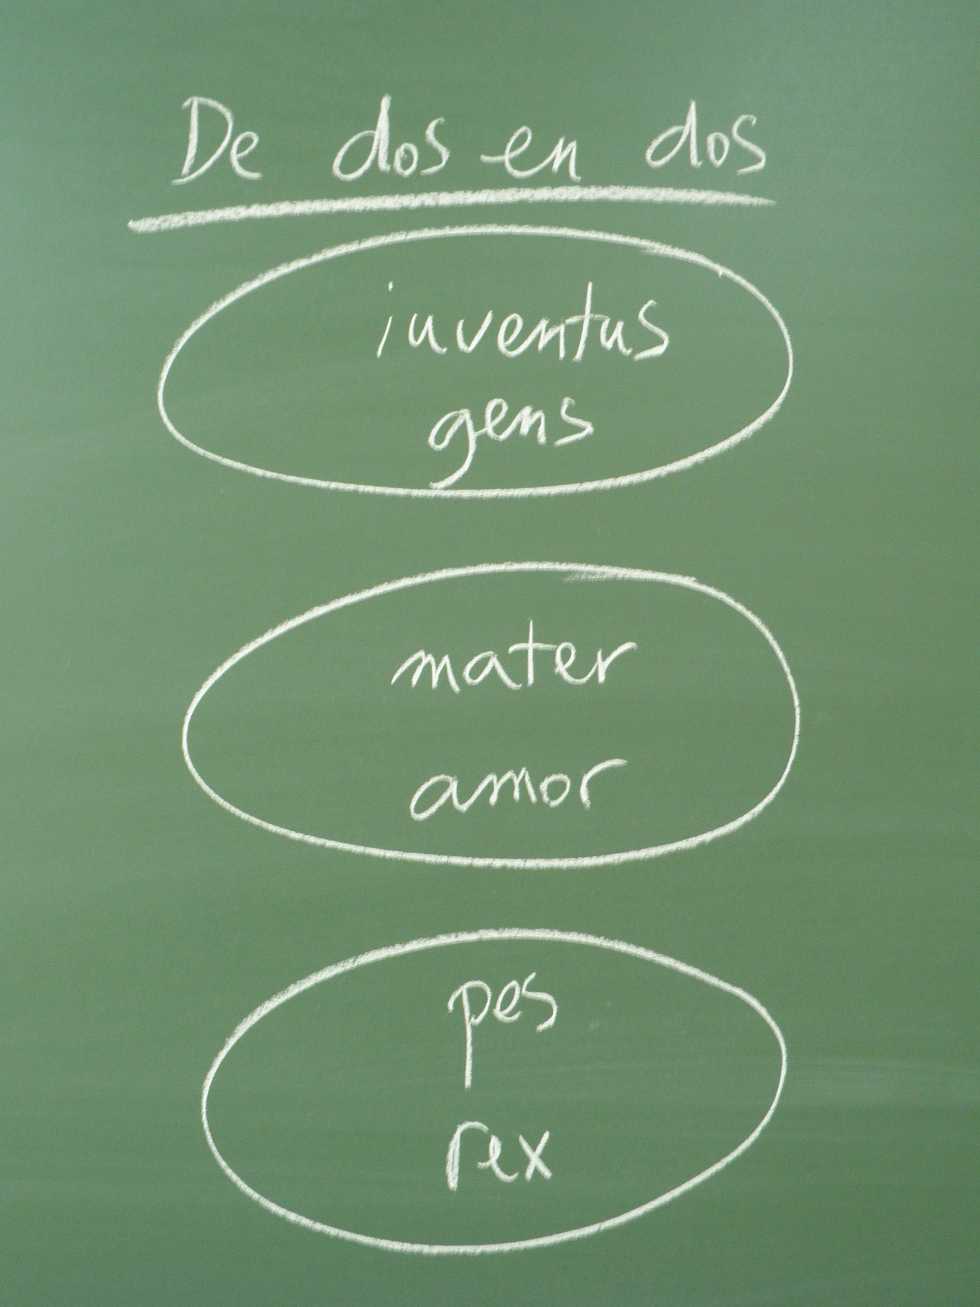 De dos en dos
iuventus
gens
mater
amor
pes
rex